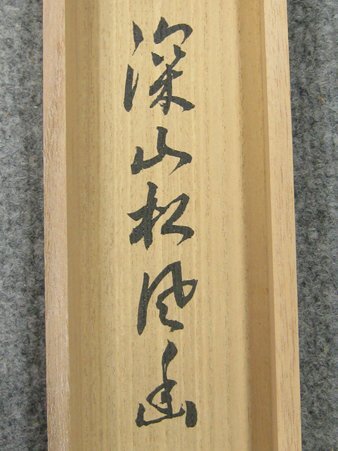 深山松風幽